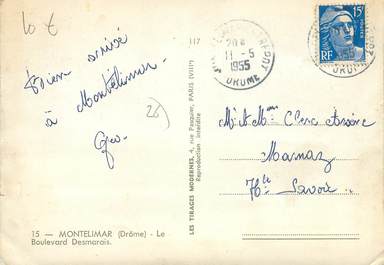 10 €
117
20 H
11-5
1955
DROME
15F
RF
Bien arrivé
à Montélimar.
Geo.
28)
Mr et Mme Clerc Arsène
Marnaz
Hte Savoie
LES TIRAGES MODERNES, 4, rue Pasquier, PARIS (VIIIe)
Reproduction interdite
15 — MONTELIMAR (Drôme) - Le
Boulevard Desmarais.